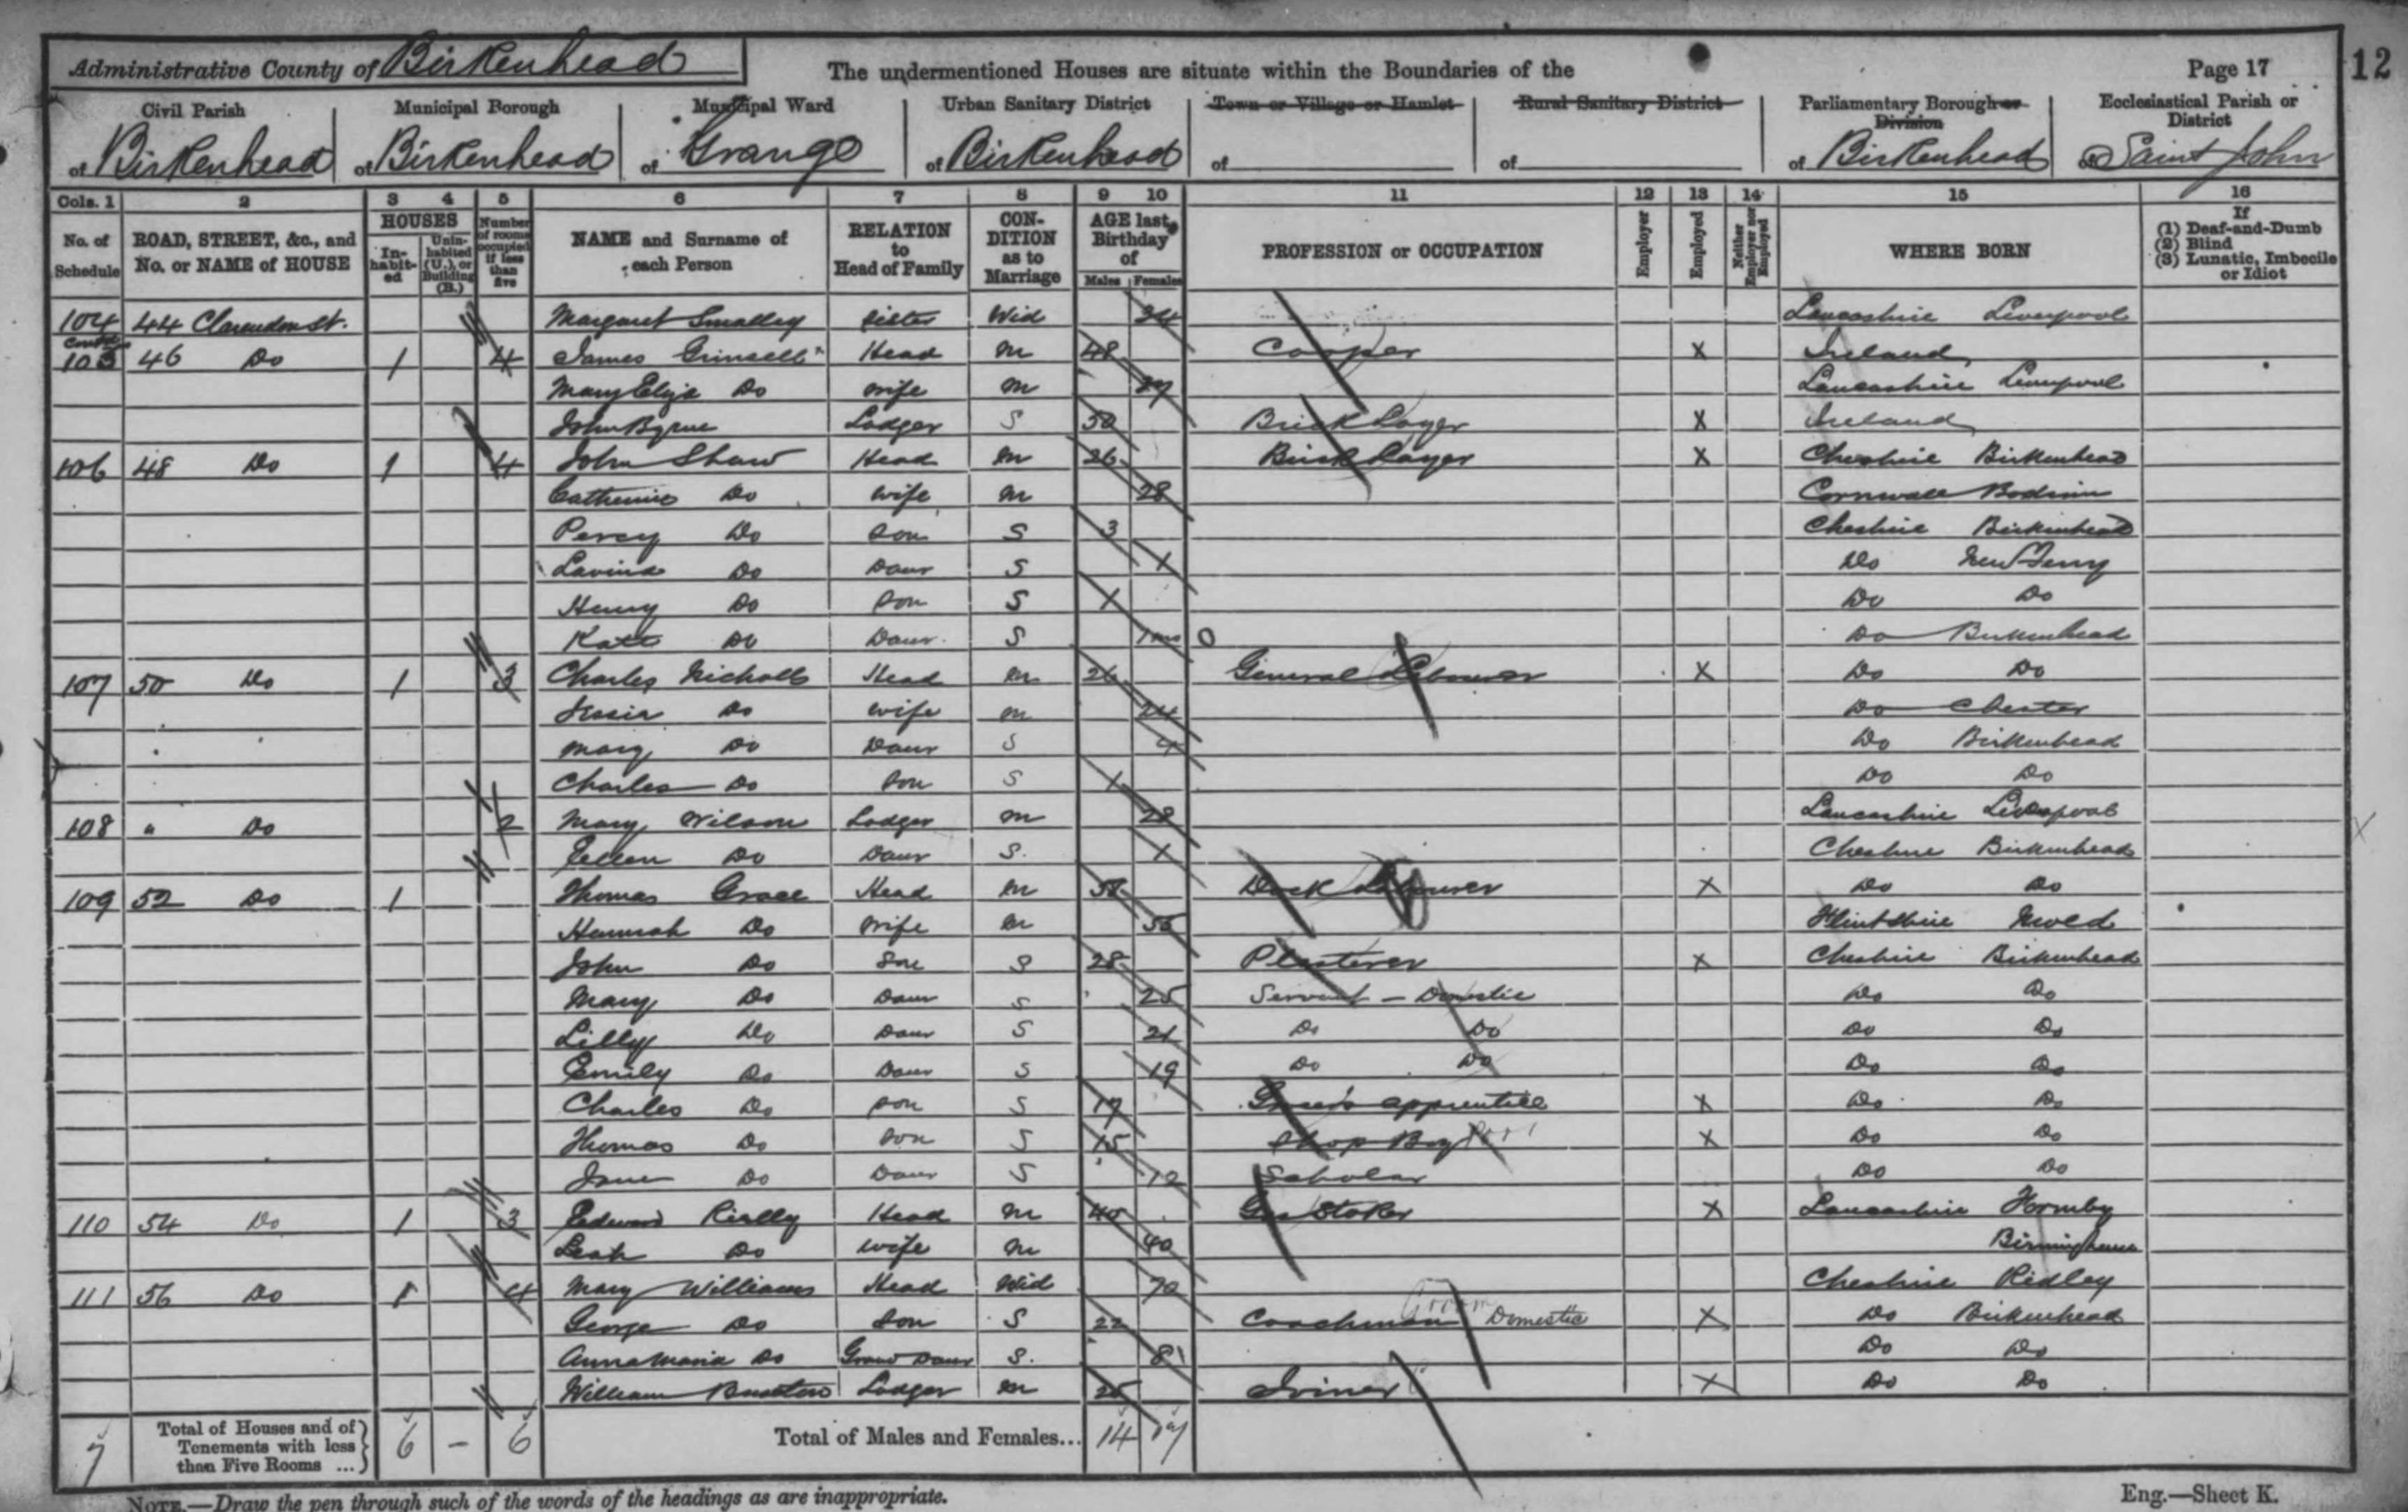 Administrative County of Birkenhead The undermentioned Houses are situate within the Boundaries of the Page 17 12
Civil Parish Municipal Borough Municipal Ward Urban Sanitary District Town or Village or Hamlet Rural Sanitary District Parliamentary Borough or Division Ecclesiastical Parish or District
of Birkenhead of Birkenhead of Grange of Birkenhead of of of Birkenhead of Saint John
Cols. 1 2 3 4 5 6 7 8 9 10 11 12 13 14 15 16
No. of Schedule ROAD, STREET, &c., and No. or NAME of HOUSE HOUSES Inhabited Uninhabited (U.), or Building (B.) Number of rooms occupied if less than five NAME and Surname of each Person RELATION to Head of Family CONDITION as to Marriage AGE last Birthday of Males Females PROFESSION or OCCUPATION Employer Employed Neither Employer nor Employed WHERE BORN If (1) Deaf-and-Dumb (2) Blind (3) Lunatic, Imbecile or Idiot
104 44 Clarendon St. Margaret Smalley Sister Wid 34 Lancashire Liverpool
105 46 Do 1 4 James Head M 48 Cooper X Ireland
Mary Eliza Do Wife M Lancashire Liverpool
John Byrne Lodger S 50 Brick Layer X Ireland
106 48 Do 1 4 John Shaw Head M 26 Brick Layer X Cheshire Birkenhead
Catherine Do Wife M 28 Cornwall Bodmin
Percy Do Son S 3 Cheshire Birkenhead
Lavinia Do Daur S 1 Do New Ferry
Henry Do Son S 1 Do Do
Kate Do Daur S 1 mo Do Birkenhead
107 50 Do 1 3 Charles Nicholls Head M 26 General Labourer X Do Do
Do Wife M 24 Do Chester
Mary Do Daur S 4 Do Birkenhead
Charles Do Son S 1 Do Do
108 " Do 2 Mary Wilson Lodger M 28 Lancashire Liverpool
Ellen Do Daur S. 1 Cheshire Birkenhead
109 52 Do 1 Thomas Grace Head M 58 Dock Labourer X Do Do
Hannah Do Wife M 55 Flintshire Mold
John Do Son S 28 Plasterer X Cheshire Birkenhead
Mary Do Daur S 25 Servant - Domestic Do Do
Lilly Do Daur S 21 Do Do Do Do
Emily Do Daur S 19 Do Do Do Do
Charles Do Son S 17 Grocer's apprentice X Do Do
Thomas Do Son S 15 Shop Boy X Do Do
Jane Do Daur S 12 Scholar Do Do
110 54 Do 1 3 Edward Rielly Head M 40 Gas Stoker X Lancashire Formby
Leah Do Wife M 40 Birmingham
111 56 Do 1 4 Mary Williams Head Wid 70 Cheshire Ridley
George Do Son S 22 Coachman Groom Domestic X Do Birkenhead
Anna Maria Do Grand Daur S. 8 Do Do
William Lodger M 25 Joiner X Do Do
7 Total of Houses and of Tenements with less than Five Rooms ... 6 - 6 Total of Males and Females... 14 17
NOTE.—Draw the pen through such of the words of the headings as are inappropriate. Eng.—Sheet K.